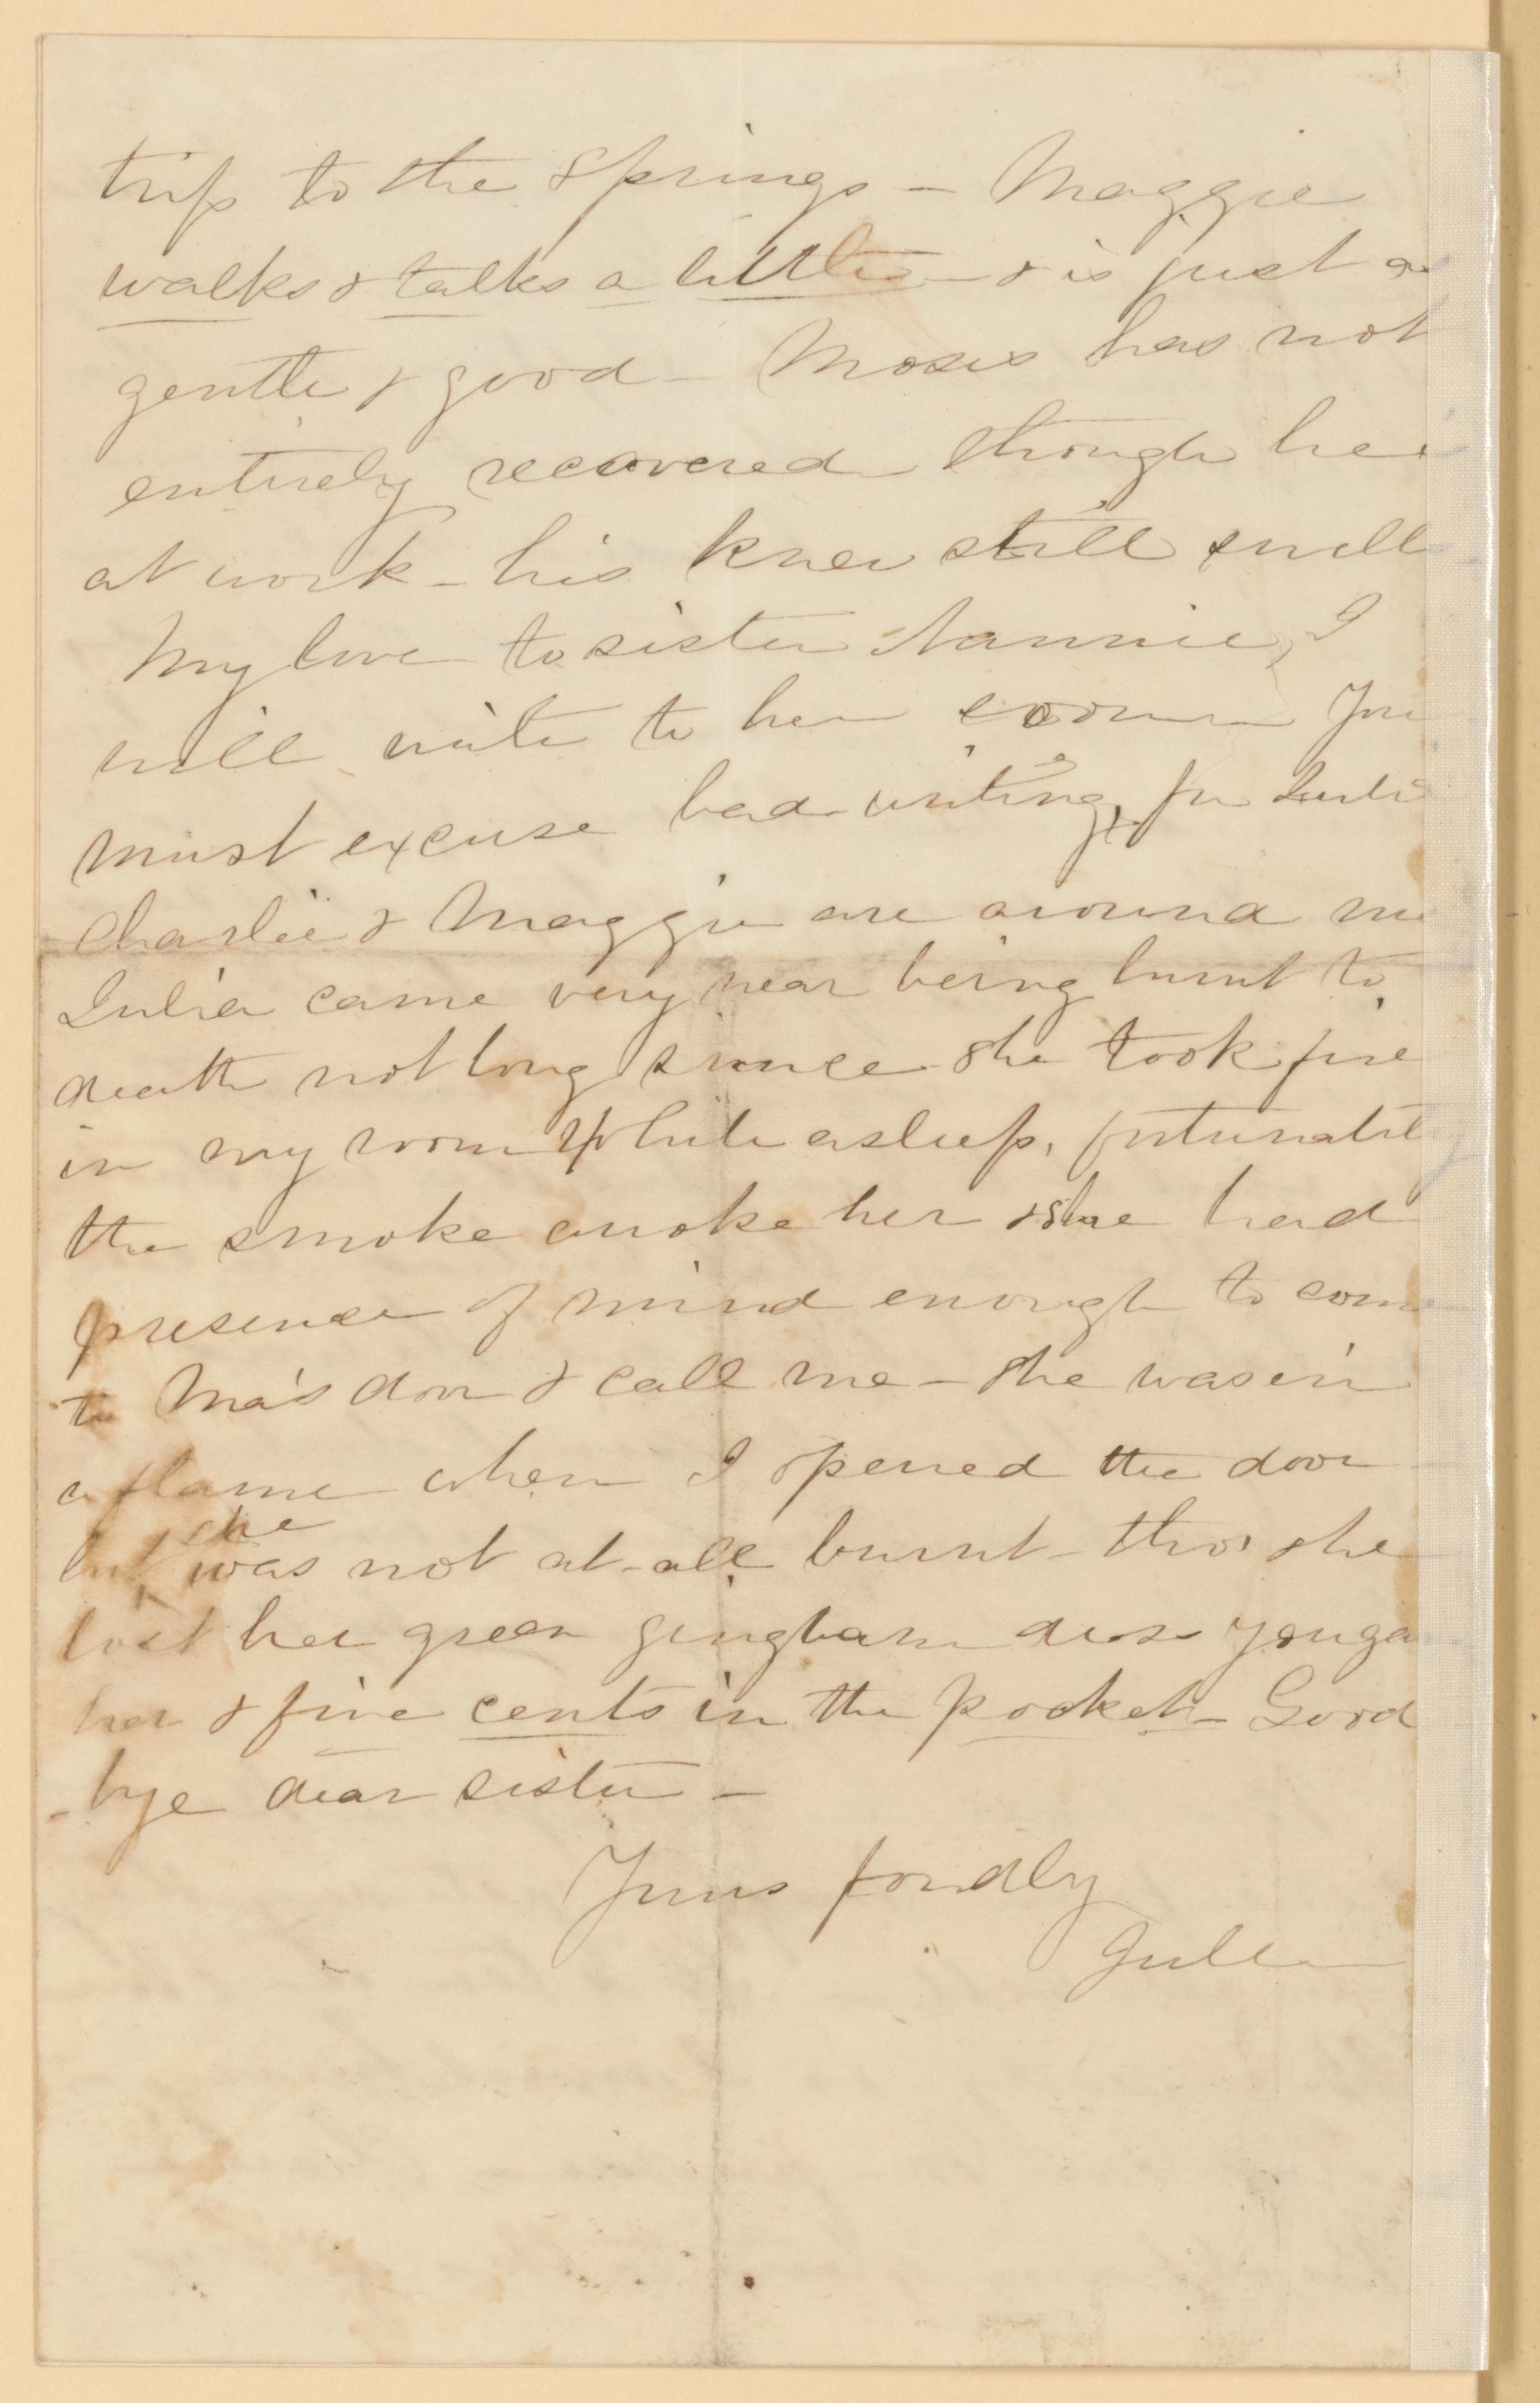 trip to the Springs - Maggie
walks & talks a little - & is just as
gentle & good - Moses has not
entirely recovered though he
at work - his knee still swells
My love to sister Nannie, I
will write to her soon You
must excuse bad writing, for
Charlie & Maggie are around me
Julia came very near being burnt to
death not long since she took fire
in my room While asleep, fortunately
the smoke awoke her & she had
presence of mind enough to come
to Ma's door & call me - she was in
a flame when I opened the door
but she was not at-all burnt - tho' she
lost her green gingham dress you gave
her & five cents in the pocket - Good
-bye dear sister -
Yours fondly